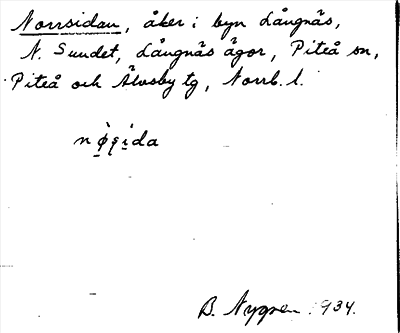 Norrsidan, åker i byn Långnäs,
N. Sundet, Långnäs ägor, Piteå sn,
Piteå och Älvsby tg, Norrb. l.
nọ̀ʂida
B. Nygren 1934.